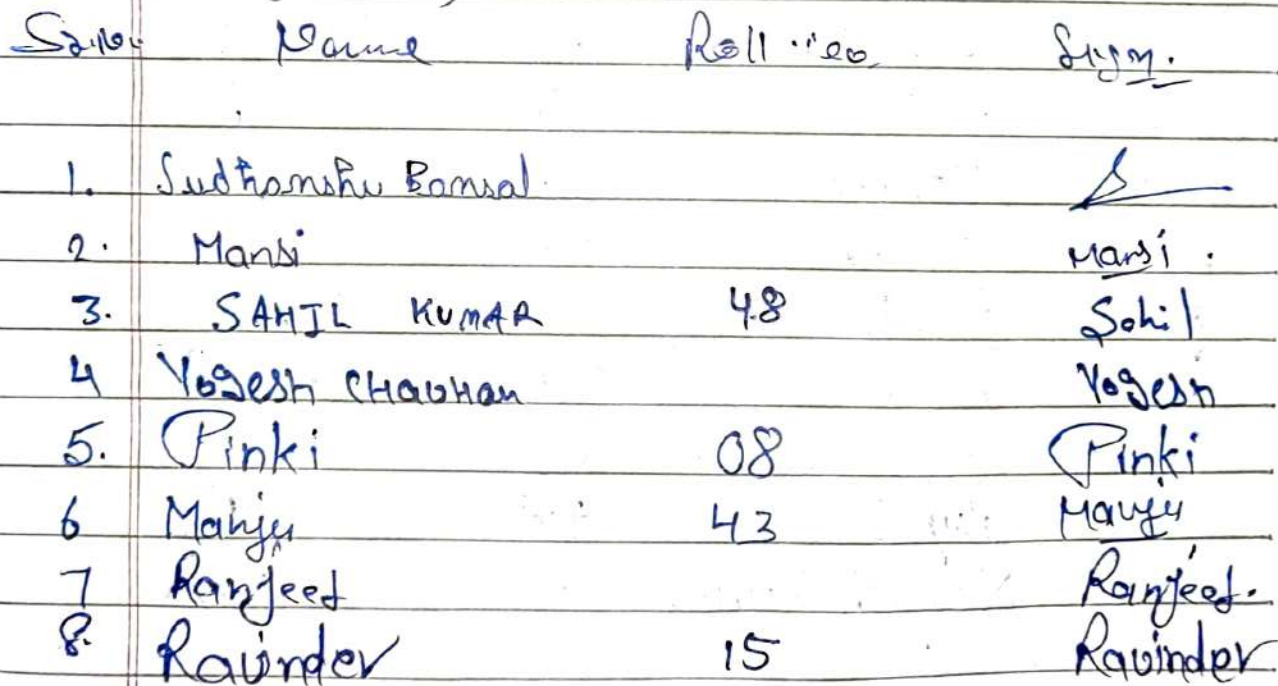 Sr.No. Name Roll No. Sign.
1. Sudhanshu Bansal
2. Mansi Mansi.
3. SAHIL KUMAR 48 Sahil
4 Yogesh CHAUHAN Yogesh
5. Pinki 08 Pinki
6 Manju 43 Manju
7 Ranjeet Ranjeet.
8. Ravinder 15 Ravinder